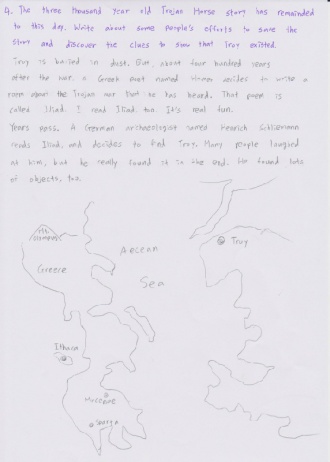 4. The three thousand year old Trojan Horse story has remainded
to this day. Write about some people's efforts to save the
story and discover the clues to show that Troy existed.
Troy is buried in dust. But, about four hundred years
after the war, a Greek poet named Homer decides to write a
poem about the Trojan war that he has heard. That poem is
called Iliad. I read Iliad, too. It's real fun.
Years pass. A German archaeologist named Heinrich Schliemann
reads Iliad, and decides to find Troy. Many people laughed
at him, but he really found it in the end. He found lots
of objects, too.
Mt.
Olympus
Greece
Aegean
Sea
Troy
Ithaca
Mycenae
Sparta